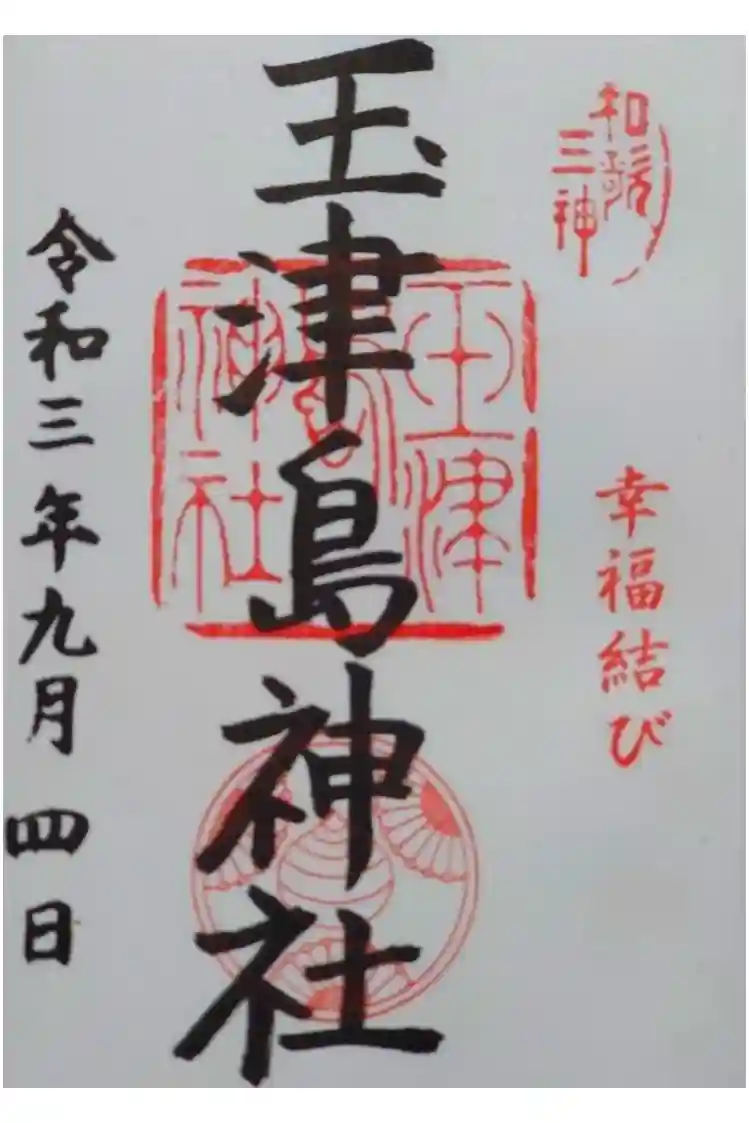 和歌
三神
幸福結び
玉津島神社
玉津
島
神社
令和三年九月四日